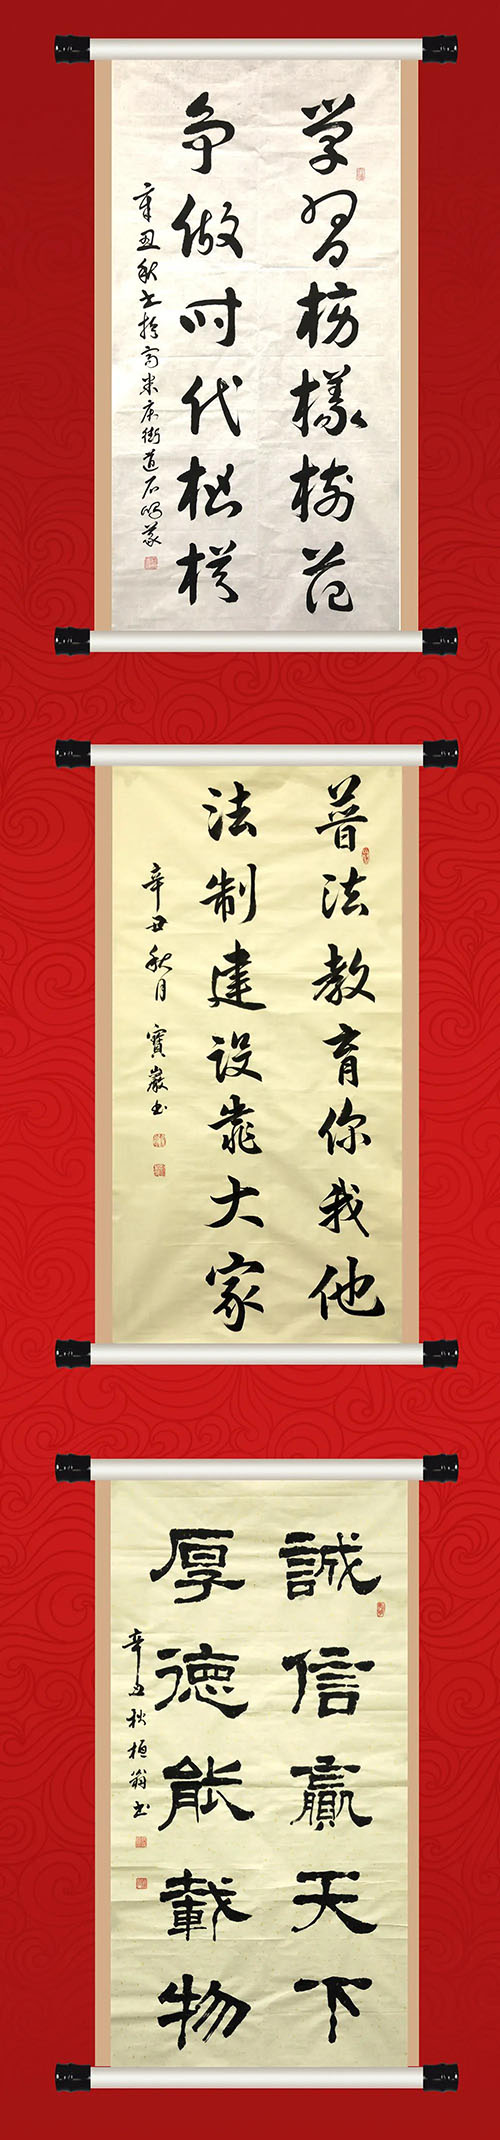 学習榜樣樹范
争做时代楷模
辛丑秋书於高米店街道石
普法教育你我他
法制建设靠大家
辛丑秋月 寶巖书
誠信贏天下
厚德能載物
辛丑秋桓翁书